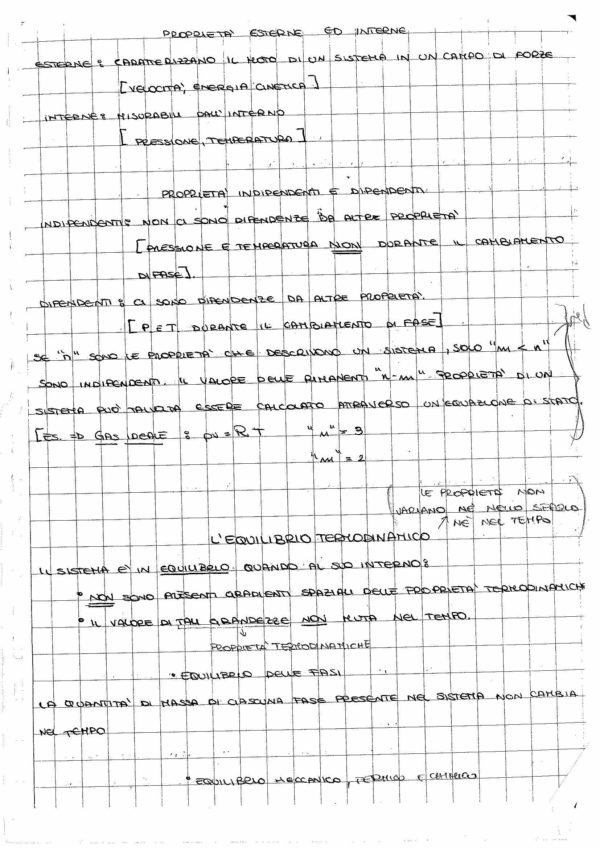 PROPRIETA' ESTERNE ED INTERNE
ESTERNE: CARATTERIZZANO IL MOTO DI UN SISTEMA IN UN CAMPO DI FORZE
[VELOCITA', ENERGIA CINETICA]
INTERNE: MISURABILI DALL'INTERNO
[PRESSIONE, TEMPERATURA]
PROPRIETA' INDIPENDENTI E DIPENDENTI
INDIPENDENTI: NON CI SONO DIPENDENZE DA ALTRE PROPRIETA'
[PRESSIONE E TEMPERATURA NON DURANTE IL CAMBIAMENTO
DI FASE].
DIPENDENTI: CI SONO DIPENDENZE DA ALTRE PROPRIETA'.
[P E T DURANTE IL CAMBIAMENTO DI FASE]
SE "n" SONO LE PROPRIETA' CHE DESCRIVONO UN SISTEMA, SOLO "m < n"
SONO INDIPENDENTI. IL VALORE DELLE RIMANENTI "n-m" PROPRIETA' DI UN
SISTEMA PUO' TALVOLTA ESSERE CALCOLATO ATTRAVERSO UN'EQUAZIONE DI STATO.
[ES. => GAS IDEALE : pv = RT "n" = 3
"m" = 2
(LE PROPRIETA' NON
VARIANO NE' NELLO SPAZIO
NE' NEL TEMPO)
L'EQUILIBRIO TERMODINAMICO
IL SISTEMA E' IN EQUILIBRIO QUANDO AL SUO INTERNO:
• NON SONO PRESENTI GRADIENTI SPAZIALI DELLE PROPRIETA' TERMODINAMICHE
• IL VALORE DI TALI GRANDEZZE NON MUTA NEL TEMPO.
↓
PROPRIETA' TERMODINAMICHE
• EQUILIBRIO DELLE FASI
LA QUANTITA' DI MASSA DI CIASCUNA FASE PRESENTE NEL SISTEMA NON CAMBIA
NEL TEMPO
• EQUILIBRIO MECCANICO, TERMICO E CHIMICO